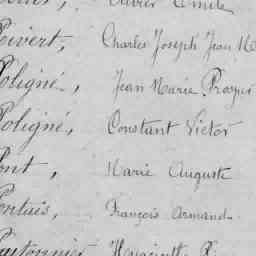 Olivier Emile
Pivert, Charles Joseph Jean M
Poligné, Jean Marie Prosper
Poligné, Constant Victor
Pont, Marie Auguste
Pontuis, François Armand